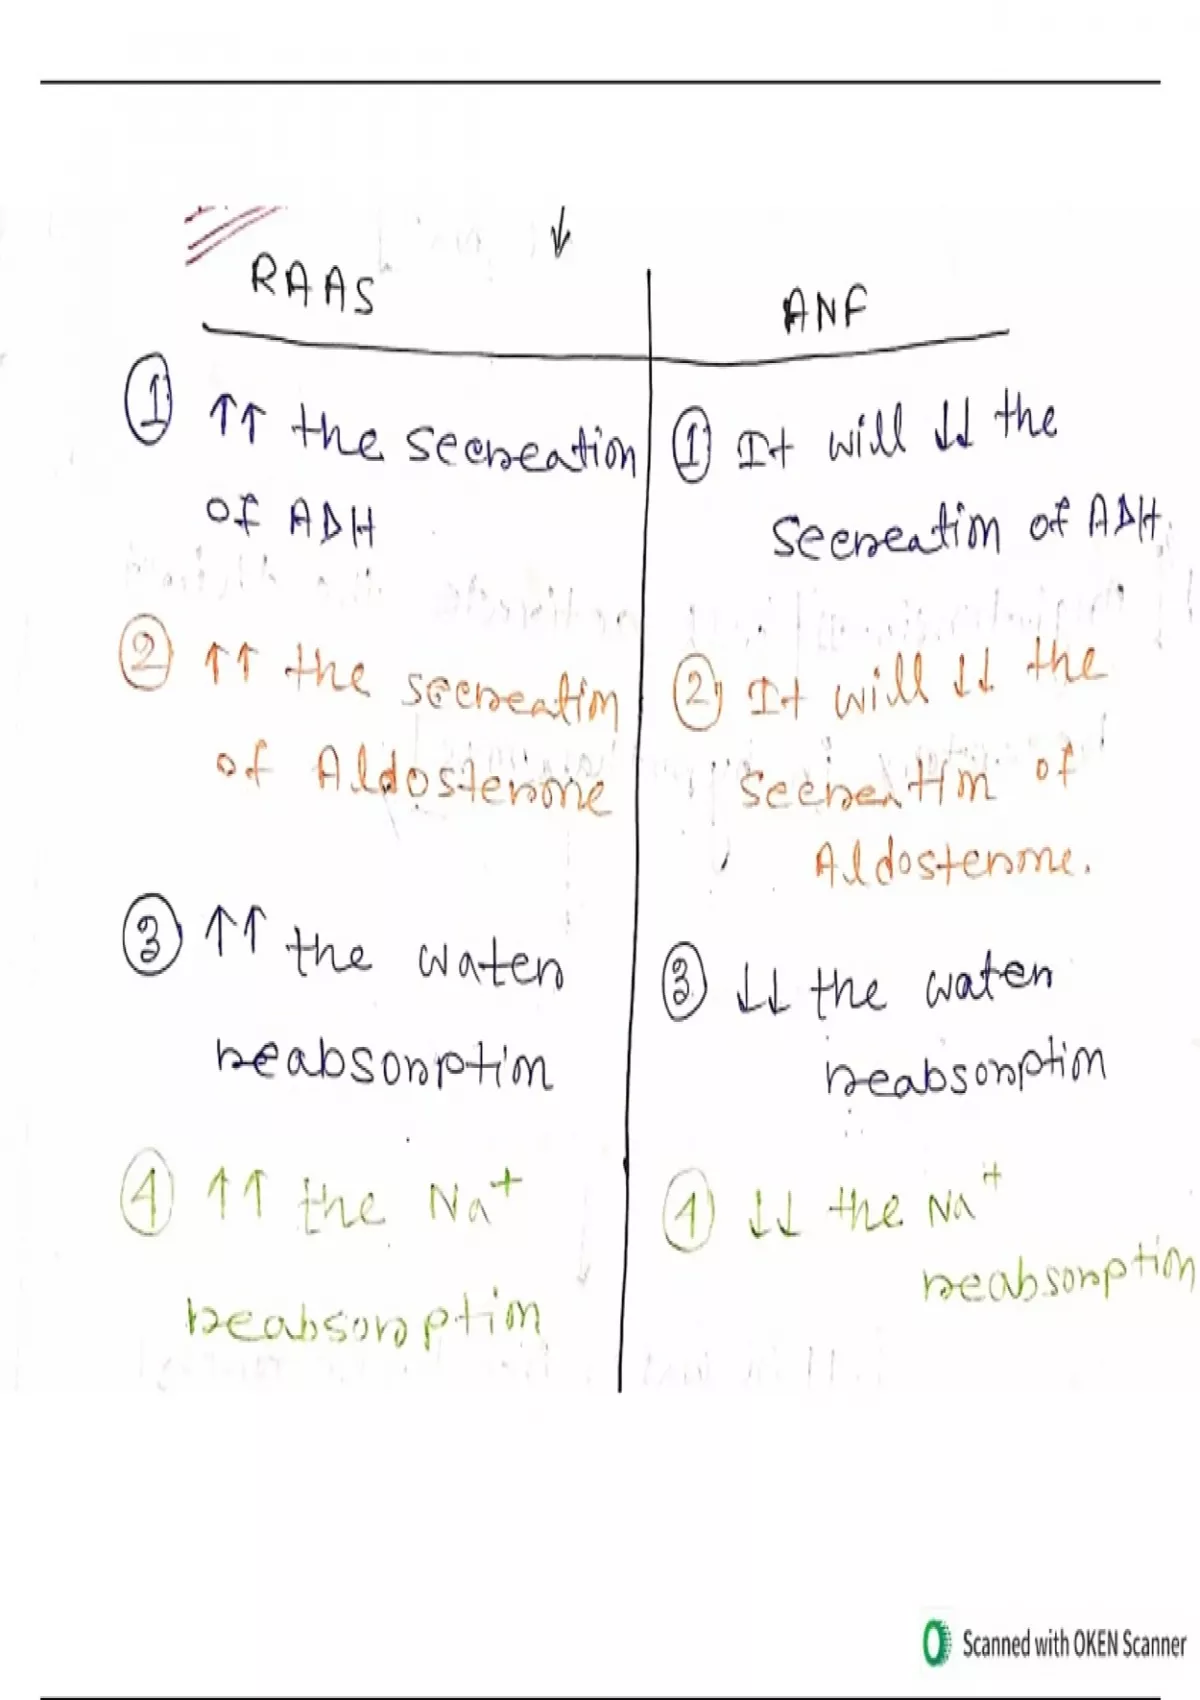 RAAS
① ↑↑ the secreation
of ADH
② ↑↑ the secreation
of Aldosterone
③ ↑↑ the water
reabsorption
④ ↑↑ the Na⁺
reabsorption
ANF
① It will ↓↓ the
secreation of ADH.
② It will ↓↓ the
secreation of
Aldosterone.
③ ↓↓ the water
reabsorption
④ ↓↓ the Na⁺
reabsorption
Scanned with OKEN Scanner